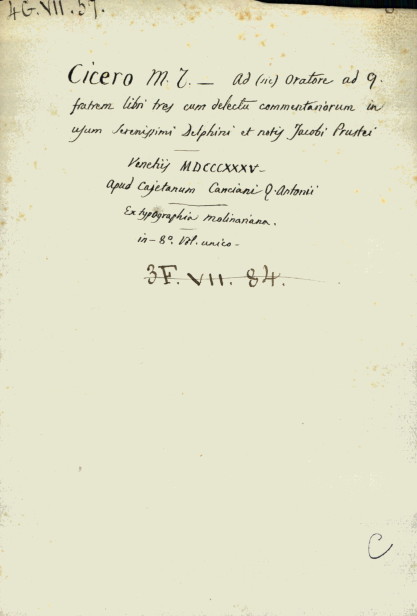 4G.VII.57.
Cicero M. T. — Ad (sic) Oratore ad Q.
fratrem libri tres cum delectu commentariorum in
usum Serenissimi Delphini et notis Jacobi Prustei
Venetiis MDCCCXXXV
apud Cajetanum Canciani Q. Antonii
Ex typographia Molinariana.
in-8°. Vol. unico-
3F. VII. 84.
C